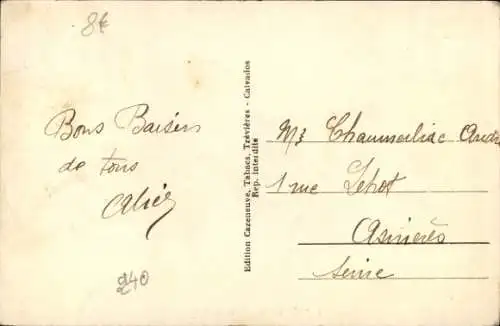 8€
Bons Baisers
de tous
Alice
240
Edition Cazeneuve, Tabacs, Trévières - Calvados
Rep. interdite
Mr Chaumeillac André
1 rue Tétot
Asnières
Seine